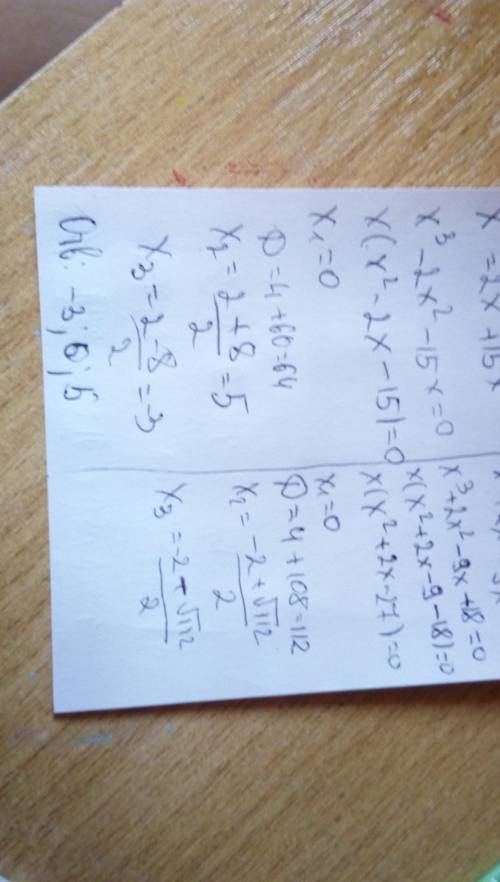 x = 2x + 15x
x³ - 2x² - 15x = 0
x(x² - 2x - 15) = 0
x₁ = 0
D = 4 + 60 = 64
x₂ = (2 + 8)/2 = 5
x₃ = (2 - 8)/2 = -3
Отв: -3; 0; 5
x³ + 2x² - 9x + 18 = 0
x(x² + 2x - 9 - 18) = 0
x(x² + 2x - 27) = 0
x₁ = 0
D = 4 + 108 = 112
x₂ = (-2 + √112)/2
x₃ = (-2 - √112)/2